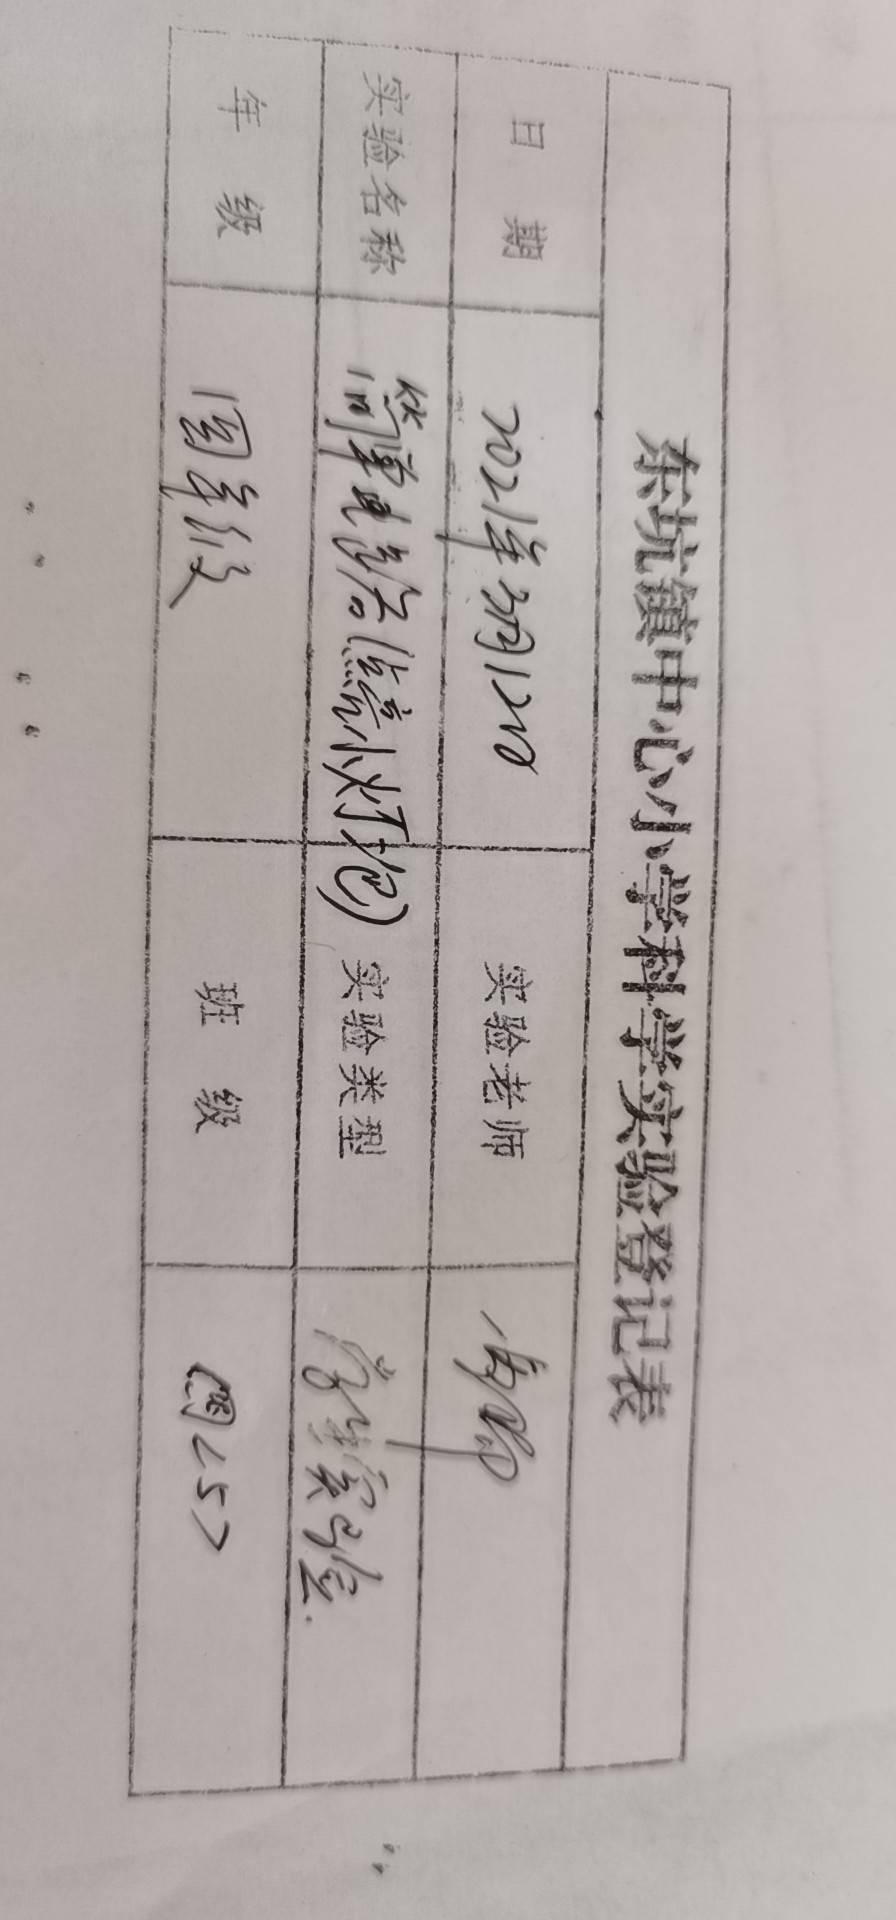 东坑镇中心小学科学实验登记表
日 期 2021年3月12日 实验老师
实验名称 简单电路(点亮小灯泡) 实验类型 实验
年 级 四年级 班 级 四<5>